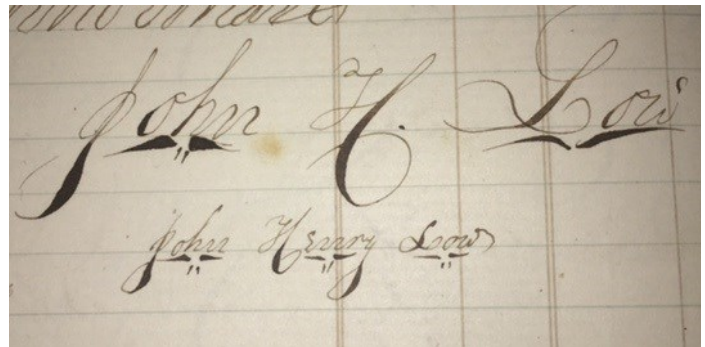 John H. Low
John Henry Low